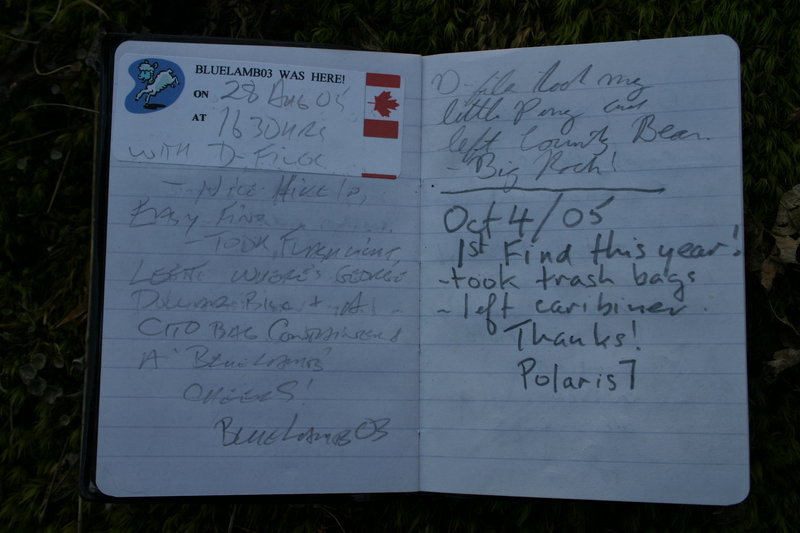 BLUELAMB03 WAS HERE!
ON 28 AUG 05
AT 1630HRS
WITH D-
- NICE HIKE IN,
EASY FIND
- TOOK
LEFT WHERE'S GEORGE
DOLLAR BILL + A
CITO BAG CONTAINER &
A 'BLUELAMB'
CHEERS!
BLUELAMB03
D- took my
little Pony and
left County Bear.
- Big Rock!
Oct 4/05
1st Find this year!
- took trash bags
- left caribiner.
Thanks!
Polaris7